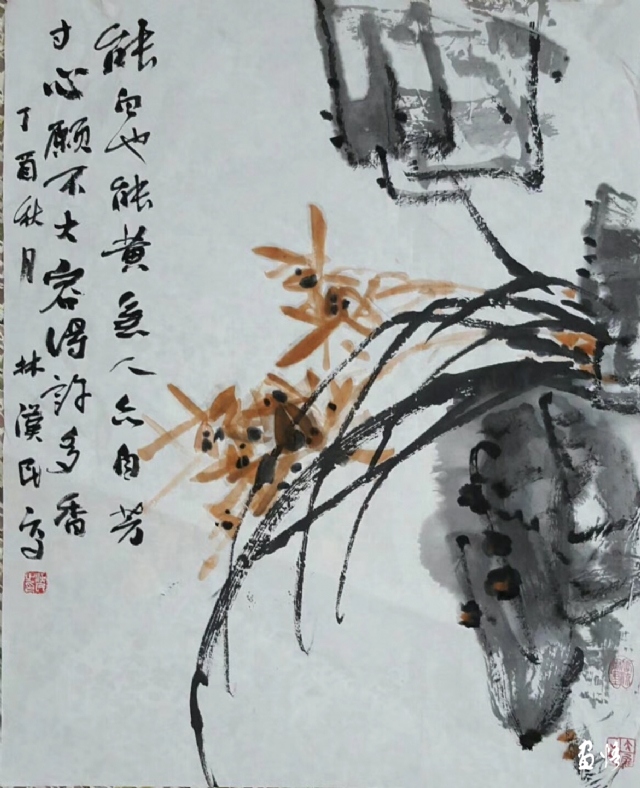 能白也能黄无人亦自芳
寸心愿不大容得许多香
丁酉秋月
林漢民写